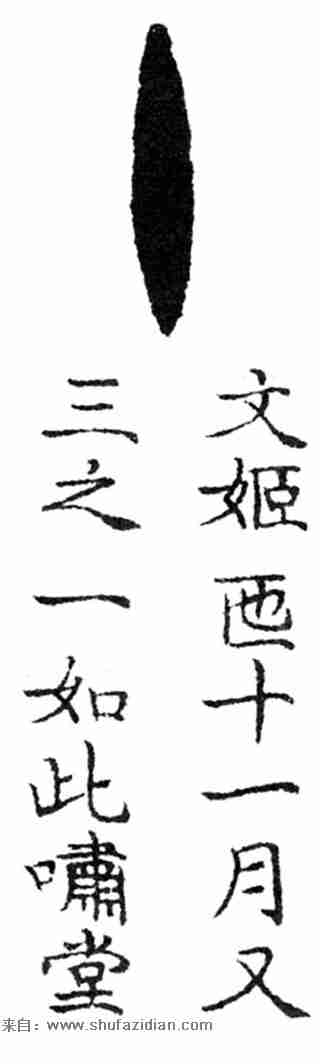 文姬匜十一月又
三之一如此嘯堂
来自：www.shufazidian.com